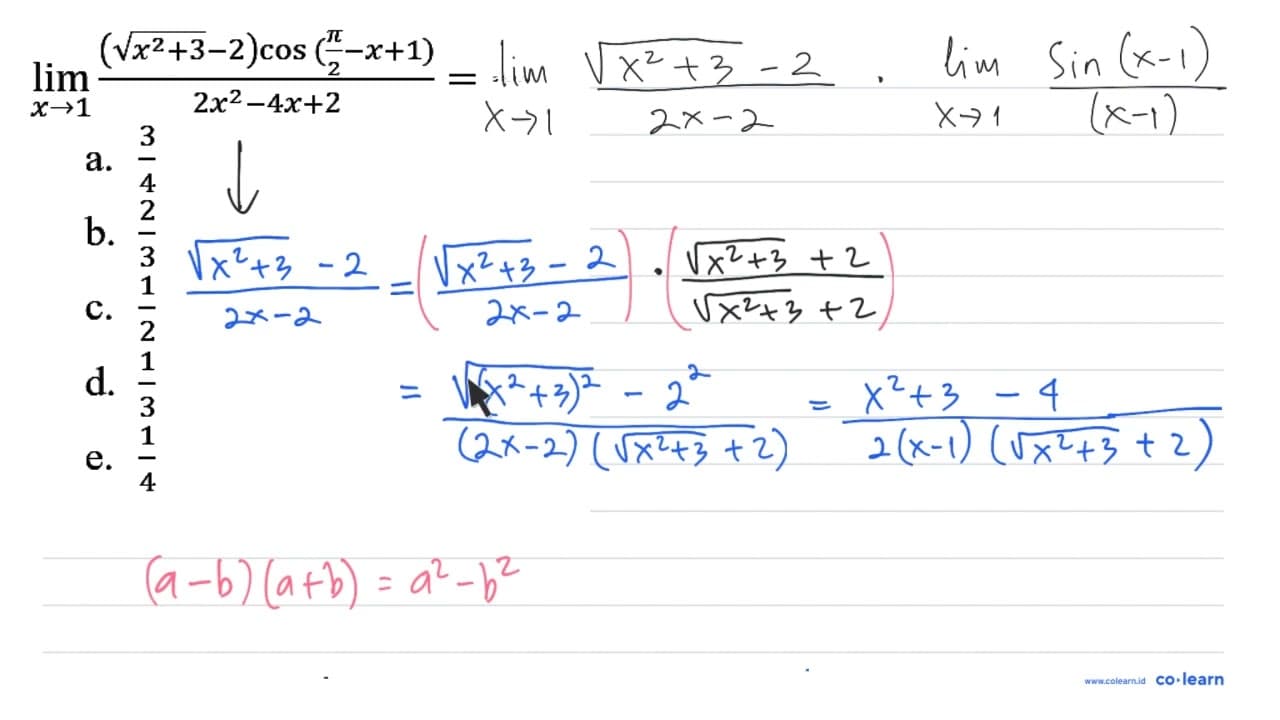 lim x→1 (√x²+3−2)cos (π/2−x+1) / 2x²−4x+2 = lim x→1 √x²+3 − 2 / 2x−2 · lim x→1 sin(x−1) / (x−1)
a. 3/4
b. 2/3
c. 1/2
d. 1/3
e. 1/4
↓
√x²+3 − 2 / 2x−2 = (√x²+3 − 2 / 2x−2) · (√x²+3 + 2 / √x²+3 + 2)
= √(x²+3)² − 2² / (2x−2)(√x²+3 + 2) = x²+3 − 4 / 2(x−1)(√x²+3 + 2)
(a−b)(a+b) = a²−b²
www.colearn.id co·learn